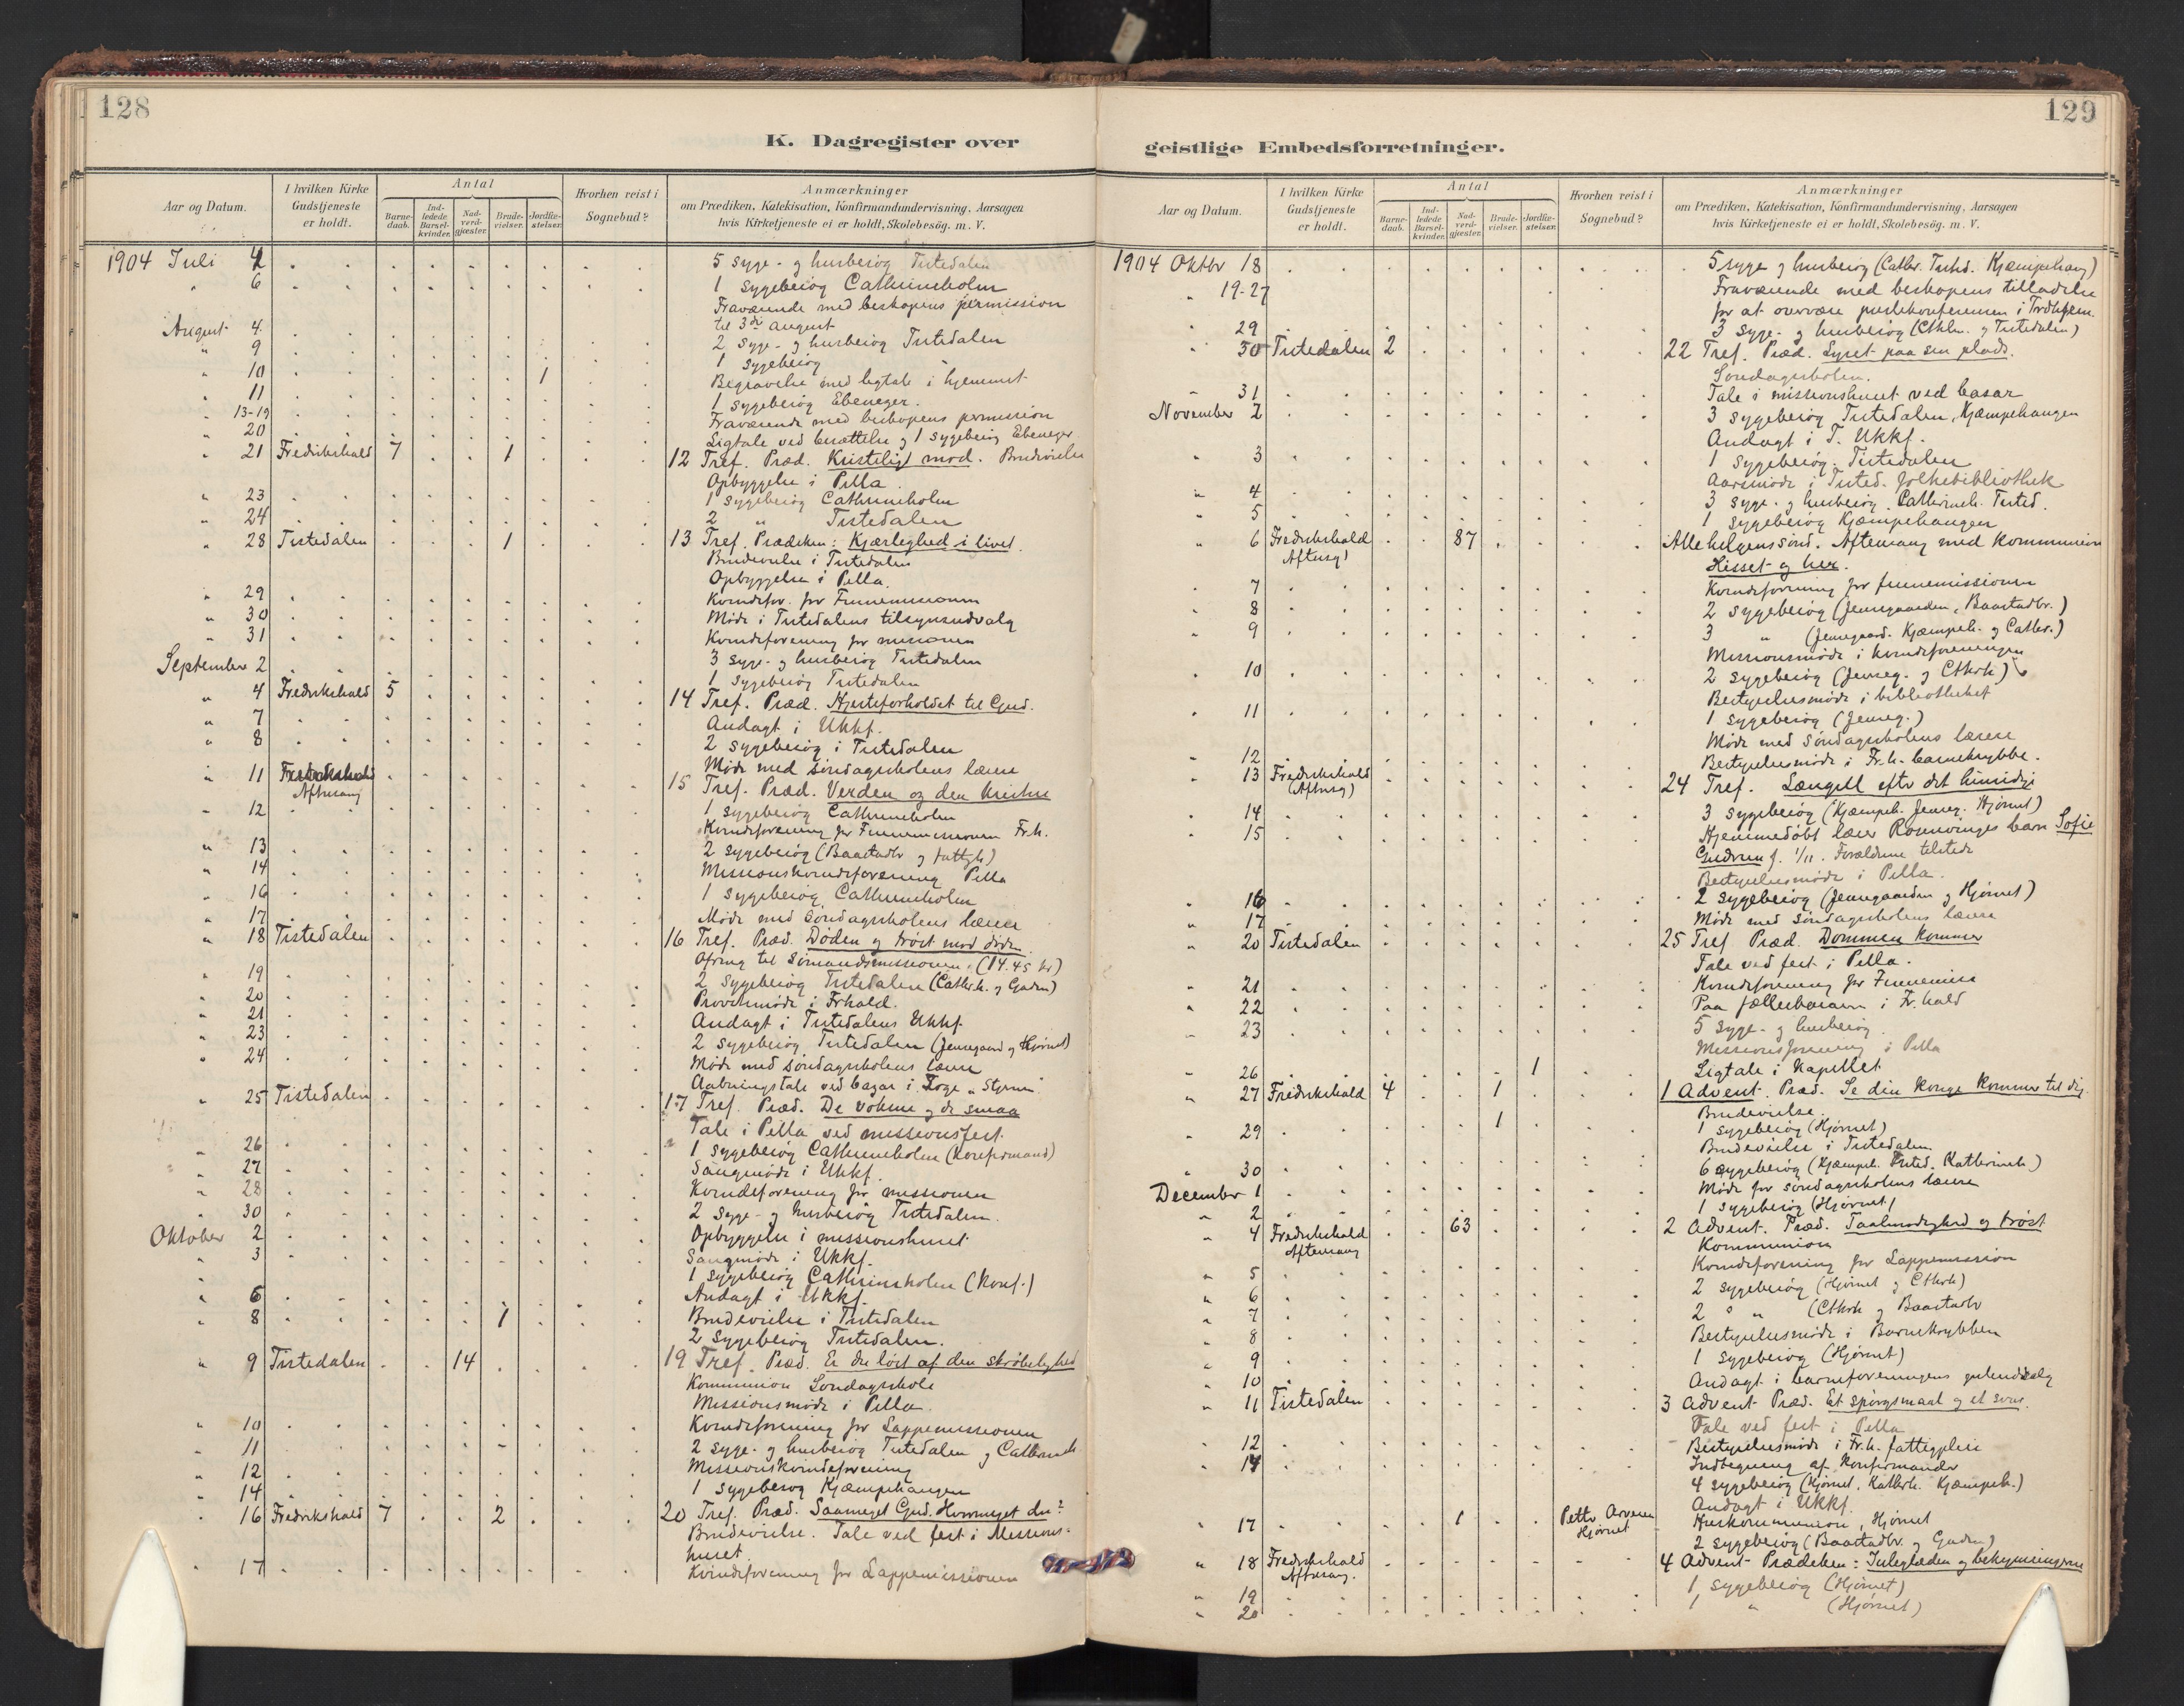 128
K. Dagregister over
Aar og Datum.
I hvilken Kirke Gudstjeneste er holdt.
Antal
Barnedaab.
Indledede Barselkvinder.
Nadverdgjæster.
Brudevielser.
Jordfæstelser.
Hvorhen reist i Sognebud?
Anmærkninger
om Prædiken, Katekisation, Konfirmandundervisning, Aarsagen
hvis Kirketjeneste ei er holdt, Skolebesøg. m. V.
1904 Juli 4 5 syge- og husbesøg Tistedalen
" 6 1 sygebesøg Cathrineholm
Fraværende med biskopens permission
til 3die august
August 4 2 syge- og husbesøg Tistedalen
" 9 1 sygebesøg "
" 10 1 Begravelse med ligtale i hjemmet
" 11 1 sygebesøg Ebeneser.
" 13-19 Fraværende med biskopens permission
" 20 Ligtale ved bisættelse og 1 sygebesøg Ebeneser
" 21 Fredrikshald 7 1 12 Tref. Præd. Kristeligt mod. Brudevielse
Opbyggelse i Pella
" 23 1 sygebesøg Cathrineholm
" 24 2 " Tistedalen
" 28 Tistedalen 1 13 Tref. Prædiken: Kjærlighed i livet.
Brudevielse i Tistedalen
Opbyggelse i Pella.
" 29 Kvindefor. for Finnemissionen
" 30 Møde i Tistedalens tilsynsudvalg
" 31 Kvindeforening for missionen
September 2 3 syge- og husbesøg Tistedalen
1 sygebesøg Tistedalen
" 4 Fredrikshald 5 14 Tref. Præd. Hjerteforholdet til Gud.
" 7 Andagt i Ukkf.
" 8 2 sygebesøg i Tistedalen
Møde med søndagsskolens lærere
" 11 Fredrikshald Aftensang 15 Tref. Præd. Verden og den kristne
" 12 1 sygebesøg Cathrineholm
Kvindeforening for Finnemissionen Fr.h.
" 13 2 sygebesøg (Baastadlv og fattigh)
" 14 Missionskvindeforening Pella
" 16 1 sygebesøg Cathrineholm
" 17 Møde med søndagsskolens lærere
" 18 Tistedalen 16 Tref. Præd. Døden og trøst mod døden.
Ofring til Sømandsmissionen. (14.45 kr)
" 19 2 sygebesøg Tistedalen (Cathrh. og Gaden)
" 20 Provstimøde i Frhald.
" 21 Andagt i Tistedalens Ukkf.
" 23 2 sygebesøg Tistedalen (Jensegaard og Hjørnet)
" 24 Møde med søndagsskolens lærere
Aabningstale ved bazar i Loge "Styrm"
" 25 Tistedalen 17 Tref. Præd. De voksne og de smaa
Tale i Pella ved missionsfest.
" 26 1 sygebesøg Cathrineholm (konfirmand)
" 27 Sangmøde i Ukkf.
" 28 Kvindeforening for missionen
" 30 2 syge- og husbesøg Tistedalen.
Oktober 2 Opbyggelse i missionshuset
" 3 Sangmøde i Ukkf.
" 1 sygebesøg Cathrineholm (konf.)
" 6 Andagt i Ukkf.
" 8 1 Brudevielse i Tistedalen
2 sygebesøg Tistedalen.
" 9 Tistedalen 14 19 Tref. Præd. Er du løst af den skrøbelighed
Kommunion Søndagsskole
Missionsmøde i Pella.
" 10 Kvindeforening for Lappemissionen
" 11 2 syge- og husbesøg Tistedalen og Cathrineh
" 12 Missionskvindeforening
" 14 1 sygebesøg Kjæmpehaugen
" 16 Fredrikshald 7 2 20 Tref. Præd. Saameget Gud. Hvormeget du?
Brudevielse. Tale ved fest i Missions-
huset
" 17 Kvindeforening for Lappemissionen
129
geistlige Embedsforretninger.
Aar og Datum.
I hvilken Kirke Gudstjeneste er holdt.
Antal
Barnedaab.
Indledede Barselkvinder.
Nadverdgjæster.
Brudevielser.
Jordfæstelser.
Hvorhen reist i Sognebud?
Anmærkninger
om Prædiken, Katekisation, Konfirmandundervisning, Aarsagen
hvis Kirketjeneste ei er holdt, Skolebesøg. m. V.
1904 Oktbr 18 5 syge og husbesøg (Cathr. Tisted. Kjæmpehaug)
" 19-27 Fraværende med biskopens tilladelse
for at overvære præstekonferensen i Trdhjem.
" 29 3 syge- og husbesøg (Cthhlm. og Tistedalen)
" 30 Tistedalen 2 22 Tref. Præd. Lyset paa sin plads.
Søndagsskolen.
" 31 Tale i missionshuset ved basar
November 2 3 sygebesøg Tistedalen, Kjæmpehaugen
Andagt i T. Ukkf.
" 3 1 sygebesøg. Tistedalen
Aarsmøde i Tisted. folkebibliothek
" 4 3 syge- og husbesøg Cathrineh. Tisted.
" 5 1 sygebesøg Kjæmpehaugen
" 6 Fredrikshald Aftensg) 87 Allehelgenssønd. Aftensang med kommunion
Hisset og her.
" 7 Kvindeforening for finnemissionen
" 8 2 sygebesøg (Jensegaarden, Baastadlv.)
" 9 3 " (Jensegaard. Kjæmpeh. og Cathr.)
Missionsmøde i kvindeforeningen
" 10 2 sygebesøg (Jenseg. og Cthrh)
Bestyrelsesmøde i bibliotheket
" 11 1 sygebesøg (Jenseg.)
Møde med søndagsskolens lærere
" 12 Bestyrelsesmøde i Fr.h. barnekrybbe.
" 13 Fredrikshald (Aftensg) 24 Tref. Længsel efter det hinsidige
" 14 3 sygebesøg (Kjæmpeh. Jenseg. Hjørnet)
" 15 Hjemmedøbt lærer Romvinges barn Sofie
Gudrun f. 1/11. Forældrene tilstede
Bestyrelsesmøde i Pella.
" 16 2 sygebesøg (Jensegaarden og Hjørnet)
" 17 Møde med søndagsskolens lærere
" 20 Tistedalen 25 Tref Præd. Dommen kommer
Tale ved fest i Pella.
" 21 Kvindeforening for Finnemiss
" 22 Paa fællesbasaren i Fr.hald
" 23 5 syge- og husbesøg
Missionsforening i Pella
" 26 1 Ligtale i kapellet
" 27 Fredrikshald 4 1 1 Advent. Præd. Se din konge kommer til dig.
Brudevielse.
" 29 1 1 sygebesøg (Hjørnet)
Brudevielse i Tistedalen
" 30 6 sygebesøg (Kjæmpeh. Tisted. Kathrineh.)
December 1 Møde for søndagsskolens lærere
" 2 1 sygebesøg (Hjørnet)
" 4 Fredrikshald Aftensang 63 2 Advent. Præd. Taalmodighed og trøst
Kommunion
" 5 Kvindeforening for Lappemission
" 6 2 sygebesøg (Hjørnet og Cthrh)
" 7 2 " " (Cthrh og Baastadlv
" 8 Bestyrelsesmøde i Barnekrybben
" 9 1 sygebesøg (Hjørnet)
" 10 Andagt i barneforeningens juleudsalg
" 11 Tistedalen 3 Advent Præd. Et spørgsmaal og et svar.
Tale ved fest i Pella
" 12 Bestyrelsesmøde i Fr.h. fattigpleie
" 14 Indtegning af konfirmander
4 sygebesøg (Hjørnet, Kathrh. Kjæmpeh.)
Andagt i Ukkf.
" 17 1 Hjørnet Huskommunion, Hjørnet
2 sygebesøg (Baastadlv. og Gaden)
" 18 Fredrikshald Aftensang. 4 Advent Prædiken: Juleglæden og bekymringerne
" 19 1 sygebesøg (Hjørnet)
" 20 1 " (Hjørnet)